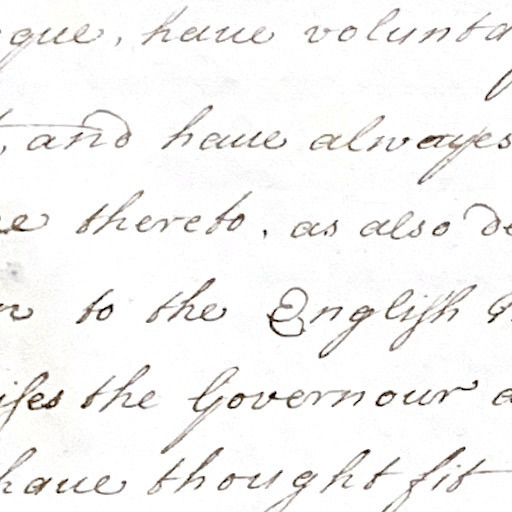 gue, haue volunta
, and haue alwayes
thereto, as also de
to the Engliſh
iſes the Governour a
haue thought fit